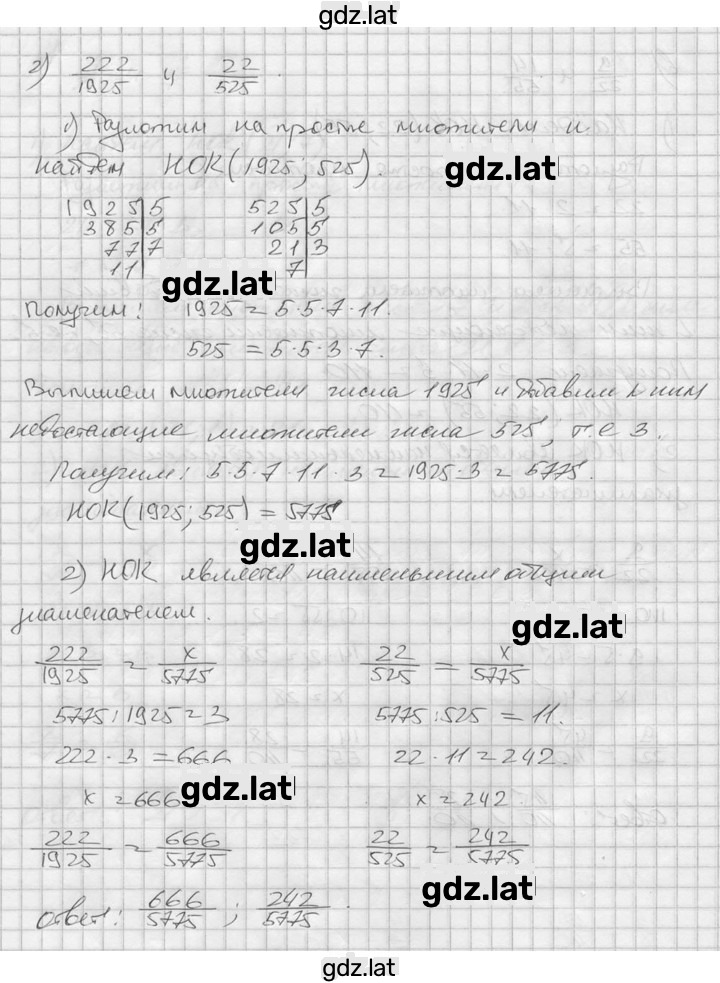 gdz.lat
г) 222/1925 и 22/525.
1) Разложим на простые множители и
найдем НОК(1925; 525).
gdz.lat
1925|5 525|5
385|5 105|5
77|7 21|3
11| 7|
gdz.lat
Получим: 1925 = 5·5·7·11.
525 = 5·5·3·7.
Выпишем множители числа 1925 и добавим к ним
недостающие множители числа 525, т.е 3.
Получим: 5·5·7·11·3 = 1925·3 = 5775.
НОК(1925; 525) = 5775
gdz.lat
2) НОК является наименьшим общим
знаменателем.
gdz.lat
222/1925 = x/5775 22/525 = x/5775
5775:1925=3 5775:525 = 11.
222·3=666 22·11=242.
gdz.lat
x=666 x=242.
222/1925 = 666/5775 22/525 = 242/5775
gdz.lat
ответ: 666/5775; 242/5775.
gdz.lat